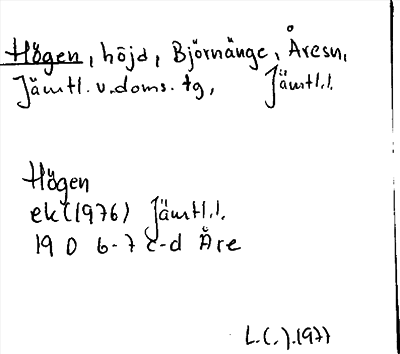 Högen, höjd, Björnänge, Åresn,
Jämtl.v.doms.tg, Jämtl.l.
Högen
ek (1976) Jämtl.l.
19 D 6-7 c-d Åre
L.(.).1977